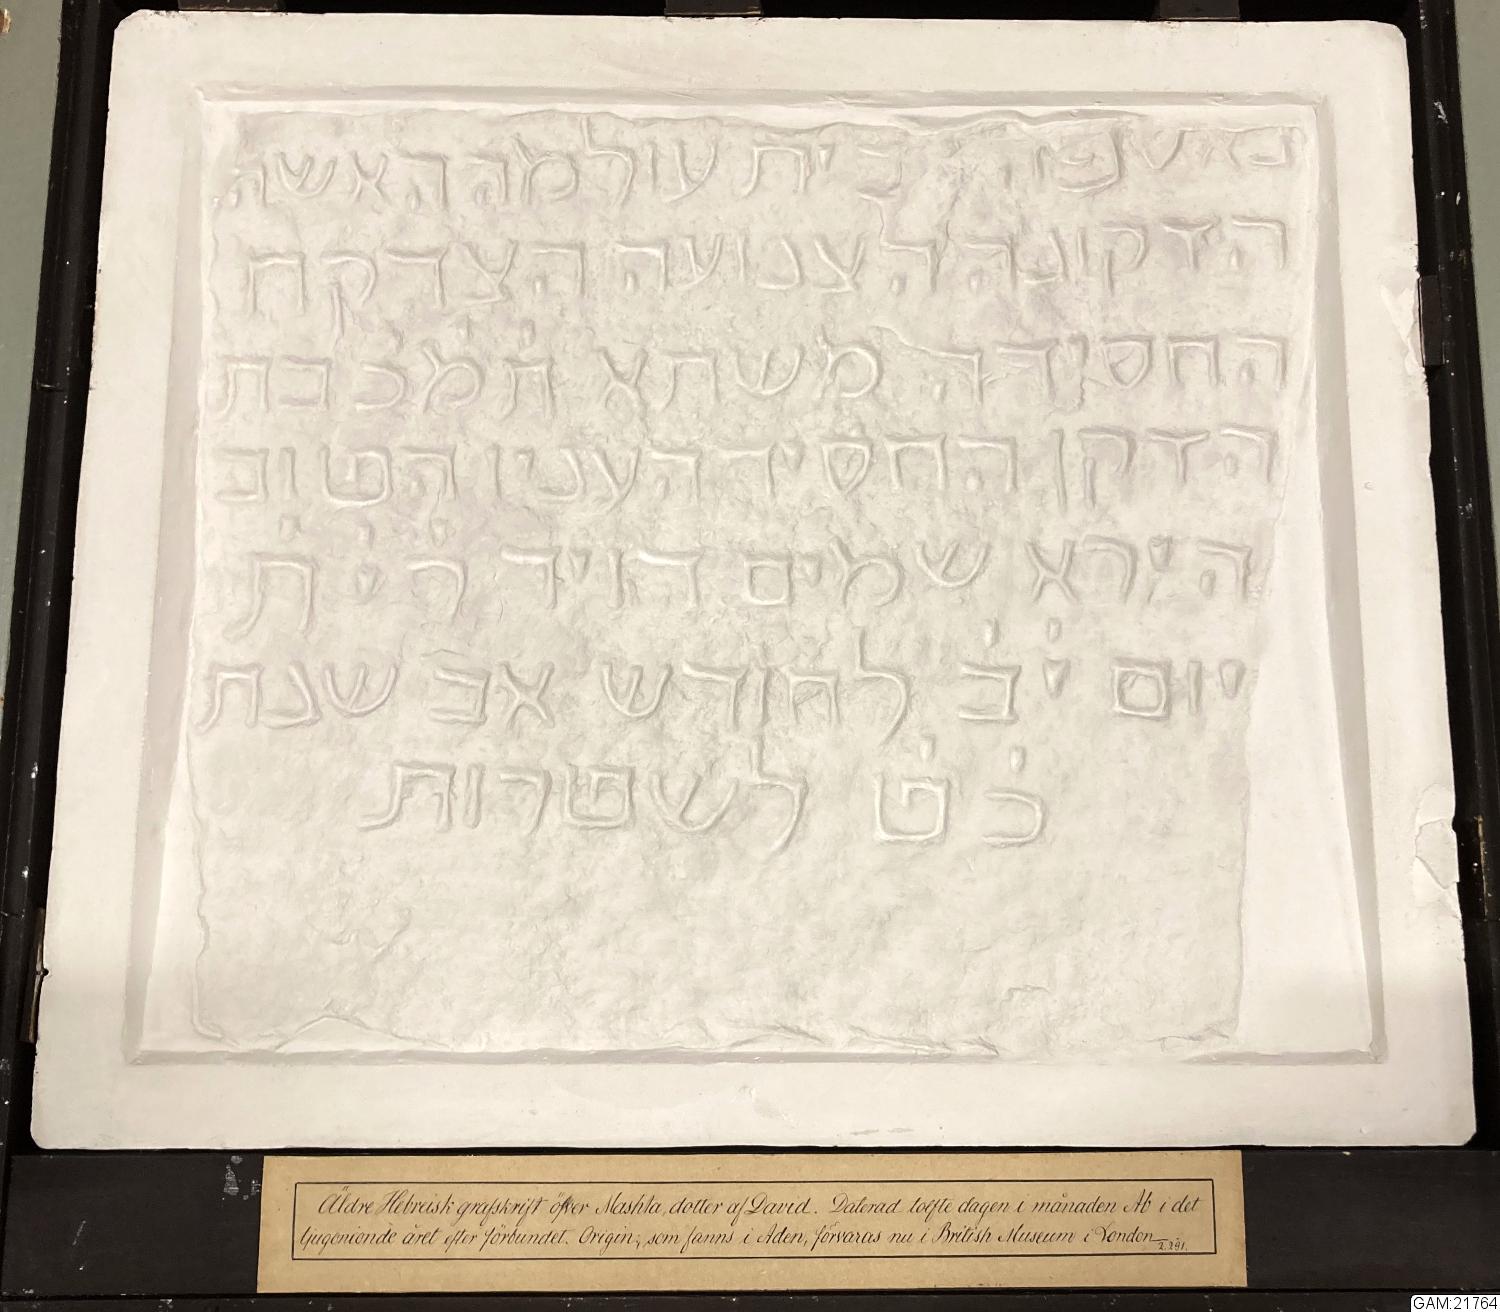 נאספה בית עולמה האשה
הדקונה הצנועה הצדקת
החסידה משתא תֹמֹכבת
הדקן החסיד העניו הטוב
הירא שמים דויד רֹיֹתֹ
יום יֹבֹ לחודש אב שנת
כֹטֹ לשטרות
Äldre Hebreisk grafskrift öfver Mashta, dotter af David. Daterad tolfte dagen i månaden Ab i det
tjugonionde året efter förbundet. Origin., som fanns i Aden, förvaras nu i British Museum i London
2.291.
GAM:21764